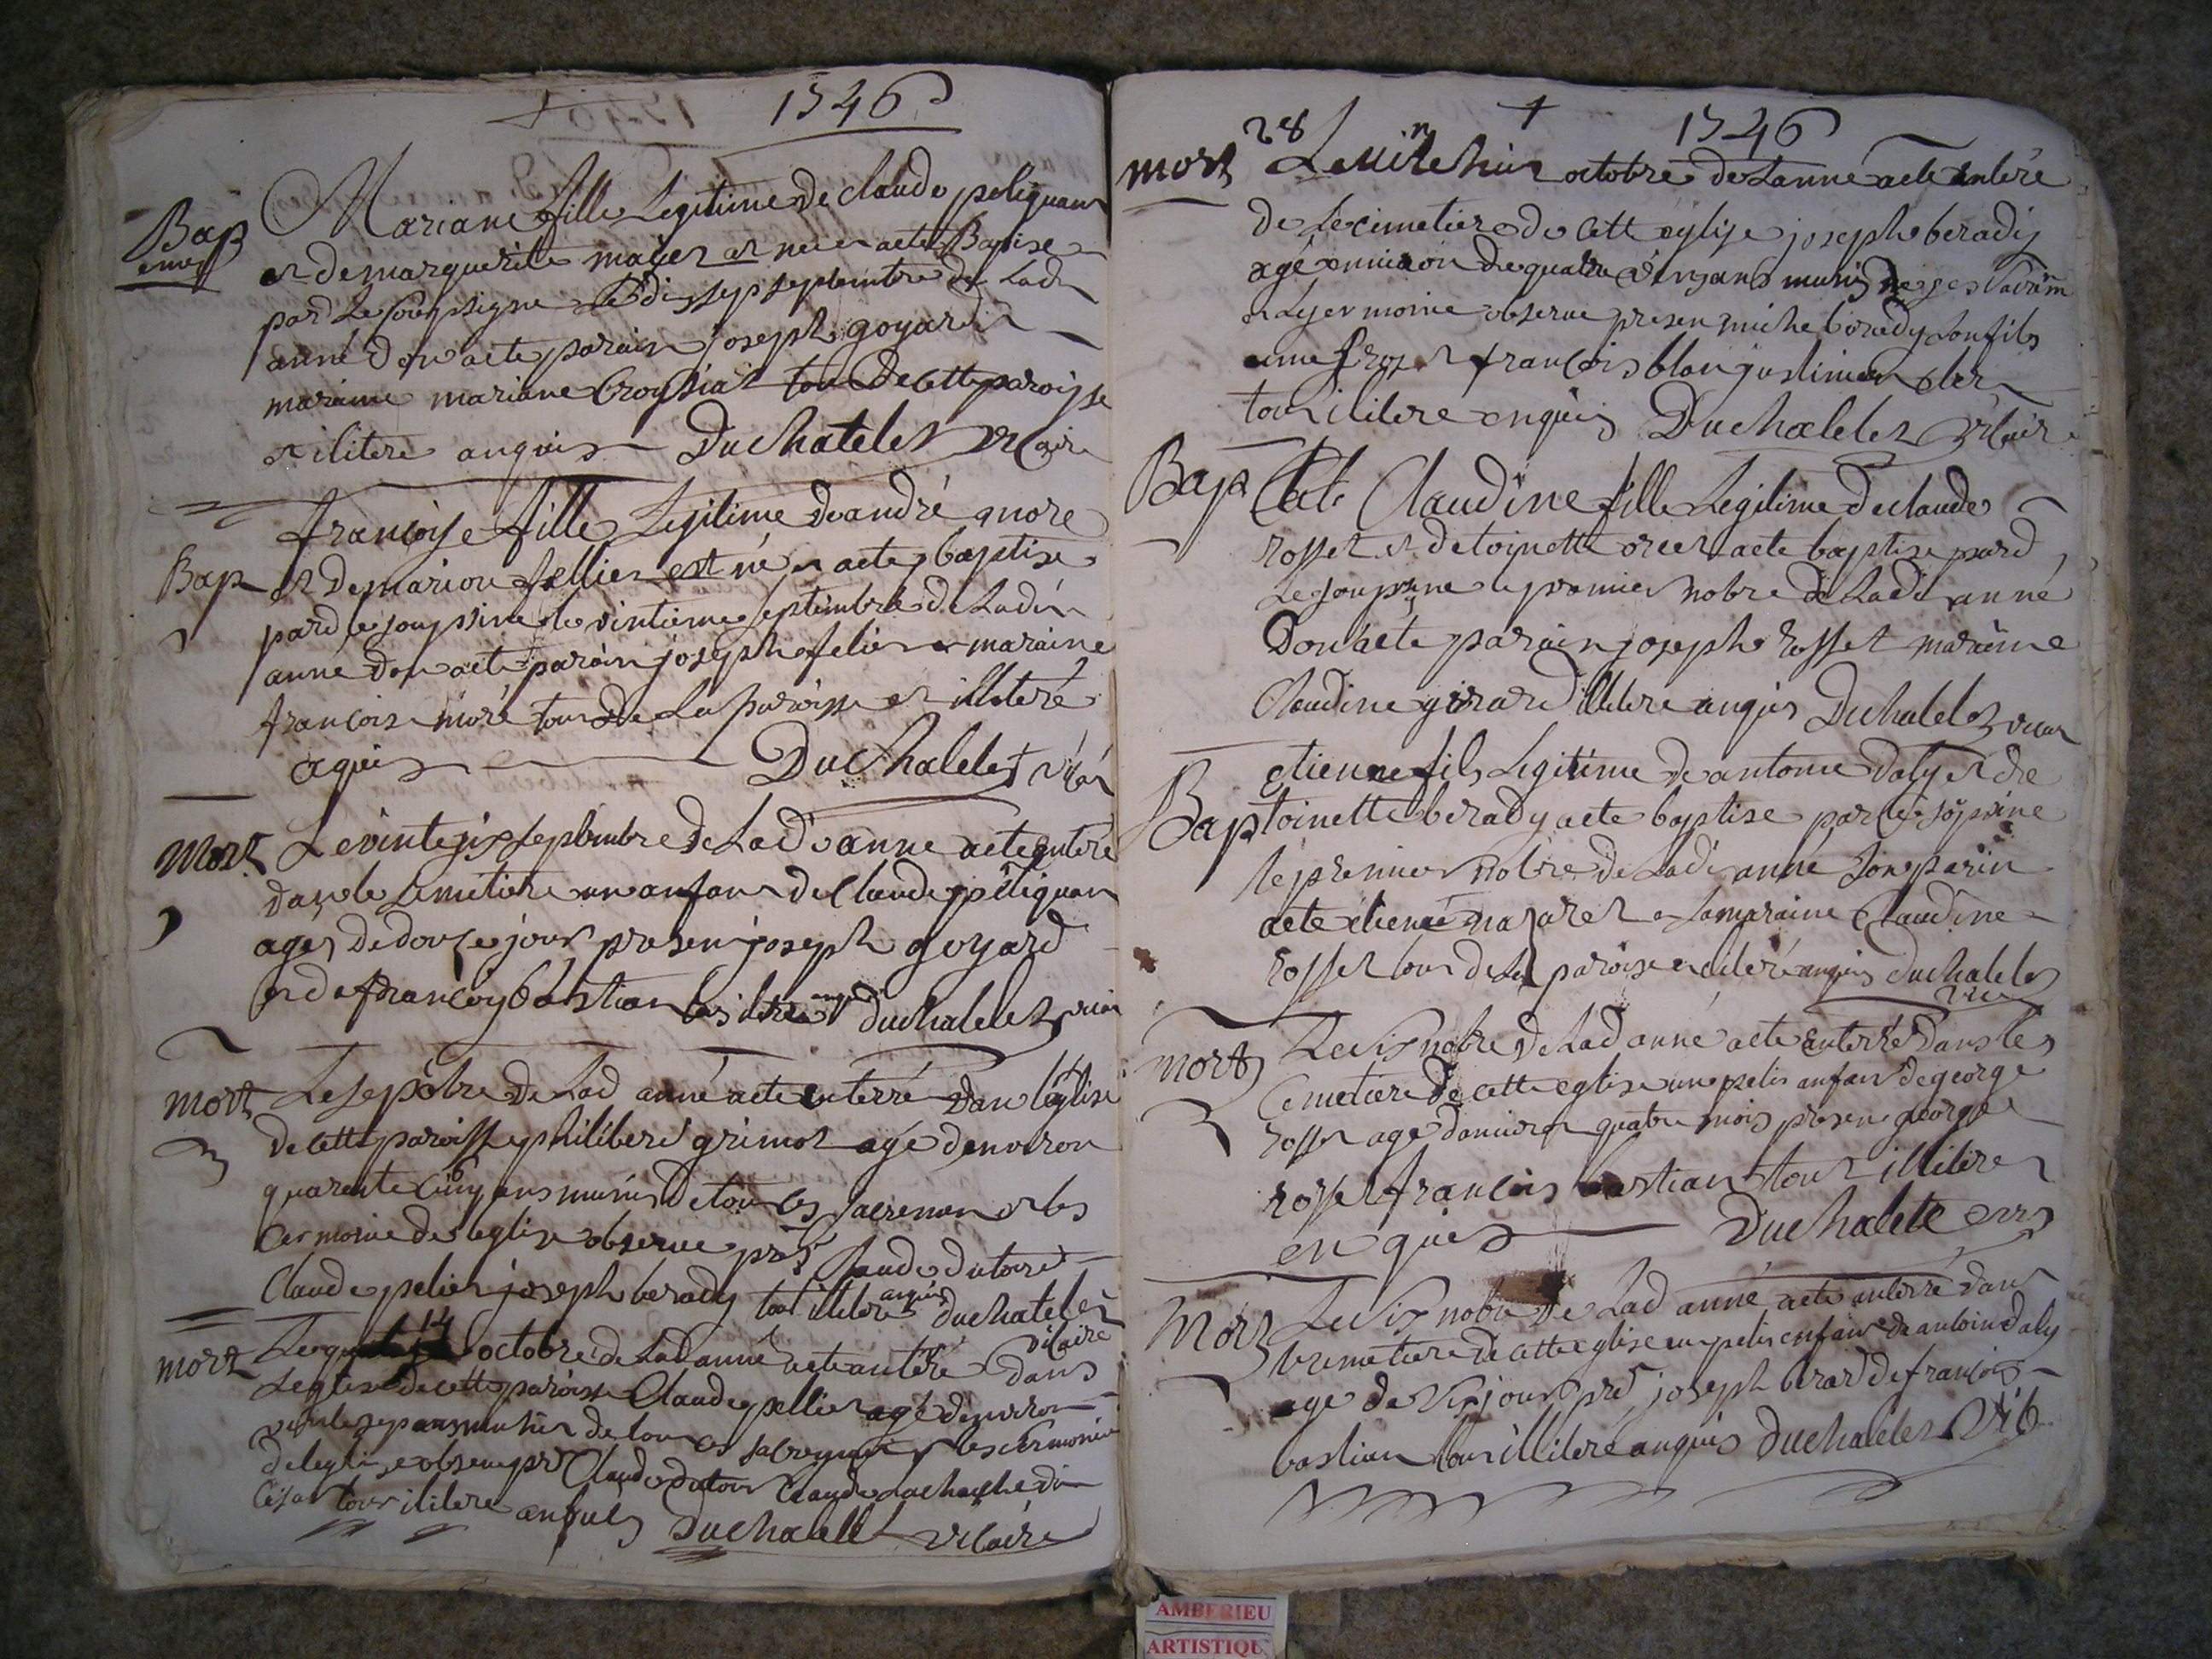 1746
Bap
Mariane fille Legitime de claude peliguan
et de marguerite mayer et né et acte Baptise
par Le sousigne le dixsep septembre de Lad
anné don acte parain joseph goyard
maraine mariane Croysiat tou de cette paroisse
et ilitere anquis Duchatelet vicaire
Bap
françoise fille Legitime de andré more
et de marion fellier est né et acte baptise
par le sousine le vintieme septembre de Ladi
anné don acte parain joseph felier et maraine
francoise moré tous de La paroisse et illiteré
aquis Duchalelet vicai
Mort
Le vintesix septembre de Lad anne acte enteré
dans le simetiere un anfan de Claude peliguan
ages de douse jour presen joseph goyard
et de francoy bastian ilitere anquis duchalelet vicai
mort
Le sep obre de Lad anné acte enterré dan l'église
de cette paroisse philibere grimot agé denviron
quarente cinq ans munis de tou les sacremen et les
cermonie de leglise observe pres claude dutour
Claude pelier joseph berady tout ilitere anquis duchatelet
vicaire
mort
Le 14 octobre de Lad anné acte anteré dans
Leglise de cette paroisse Claude pellier agé denviron
ans munies de tou les sacremen et les cermonie
de leglise observe pres Claude dutour Claude
tour ilitere anquis Duchalell vicaire
1746
mort
28
Le vinthuit octobre de Lanné acte anteré
de Le cimetiere de cett eglise joseph berady
agé enviaon de quatre vingt ans munis de ses sacrem
et Les cermonie observe presen miche berady son fils
et françois blan
tous ilitere enquis Duchalelet vicaire
Bap
Claudine fille Legitime de claude
rosset et de toinette acte baptise pard
Le sousine le premier nobre de Ladi anné
Don acte parain joseph rosset maraine
Claudine girard illitere anquis Duchalelet vicai
Bap
etienne fils Legitime de antoine daly et de
toinette berady acte baptise par le sousine
le premier nobre de Ladi anné son parin
acte etiene nazaret et la maraine Claudine
rosset tous de La paroise et ileré anquis duchalelet
vic
mort
Le six nobre de Lad anné acte enterré dans le
Cemetiere de cette eglise un petis anfan de george
rosset agé danviron quatre mois presen george
rosset françois bastian tout illitere
enquis Duchalete
Mort
Le six nobre de Lad anné acte anterré dans
le simetiere de cette eglise un petis enfan de antoin daly
agé de six jour pre joseph berard de françois
bastian tous illiteré anquis duchalelet vic
AMBERIEU
ARTISTIQU